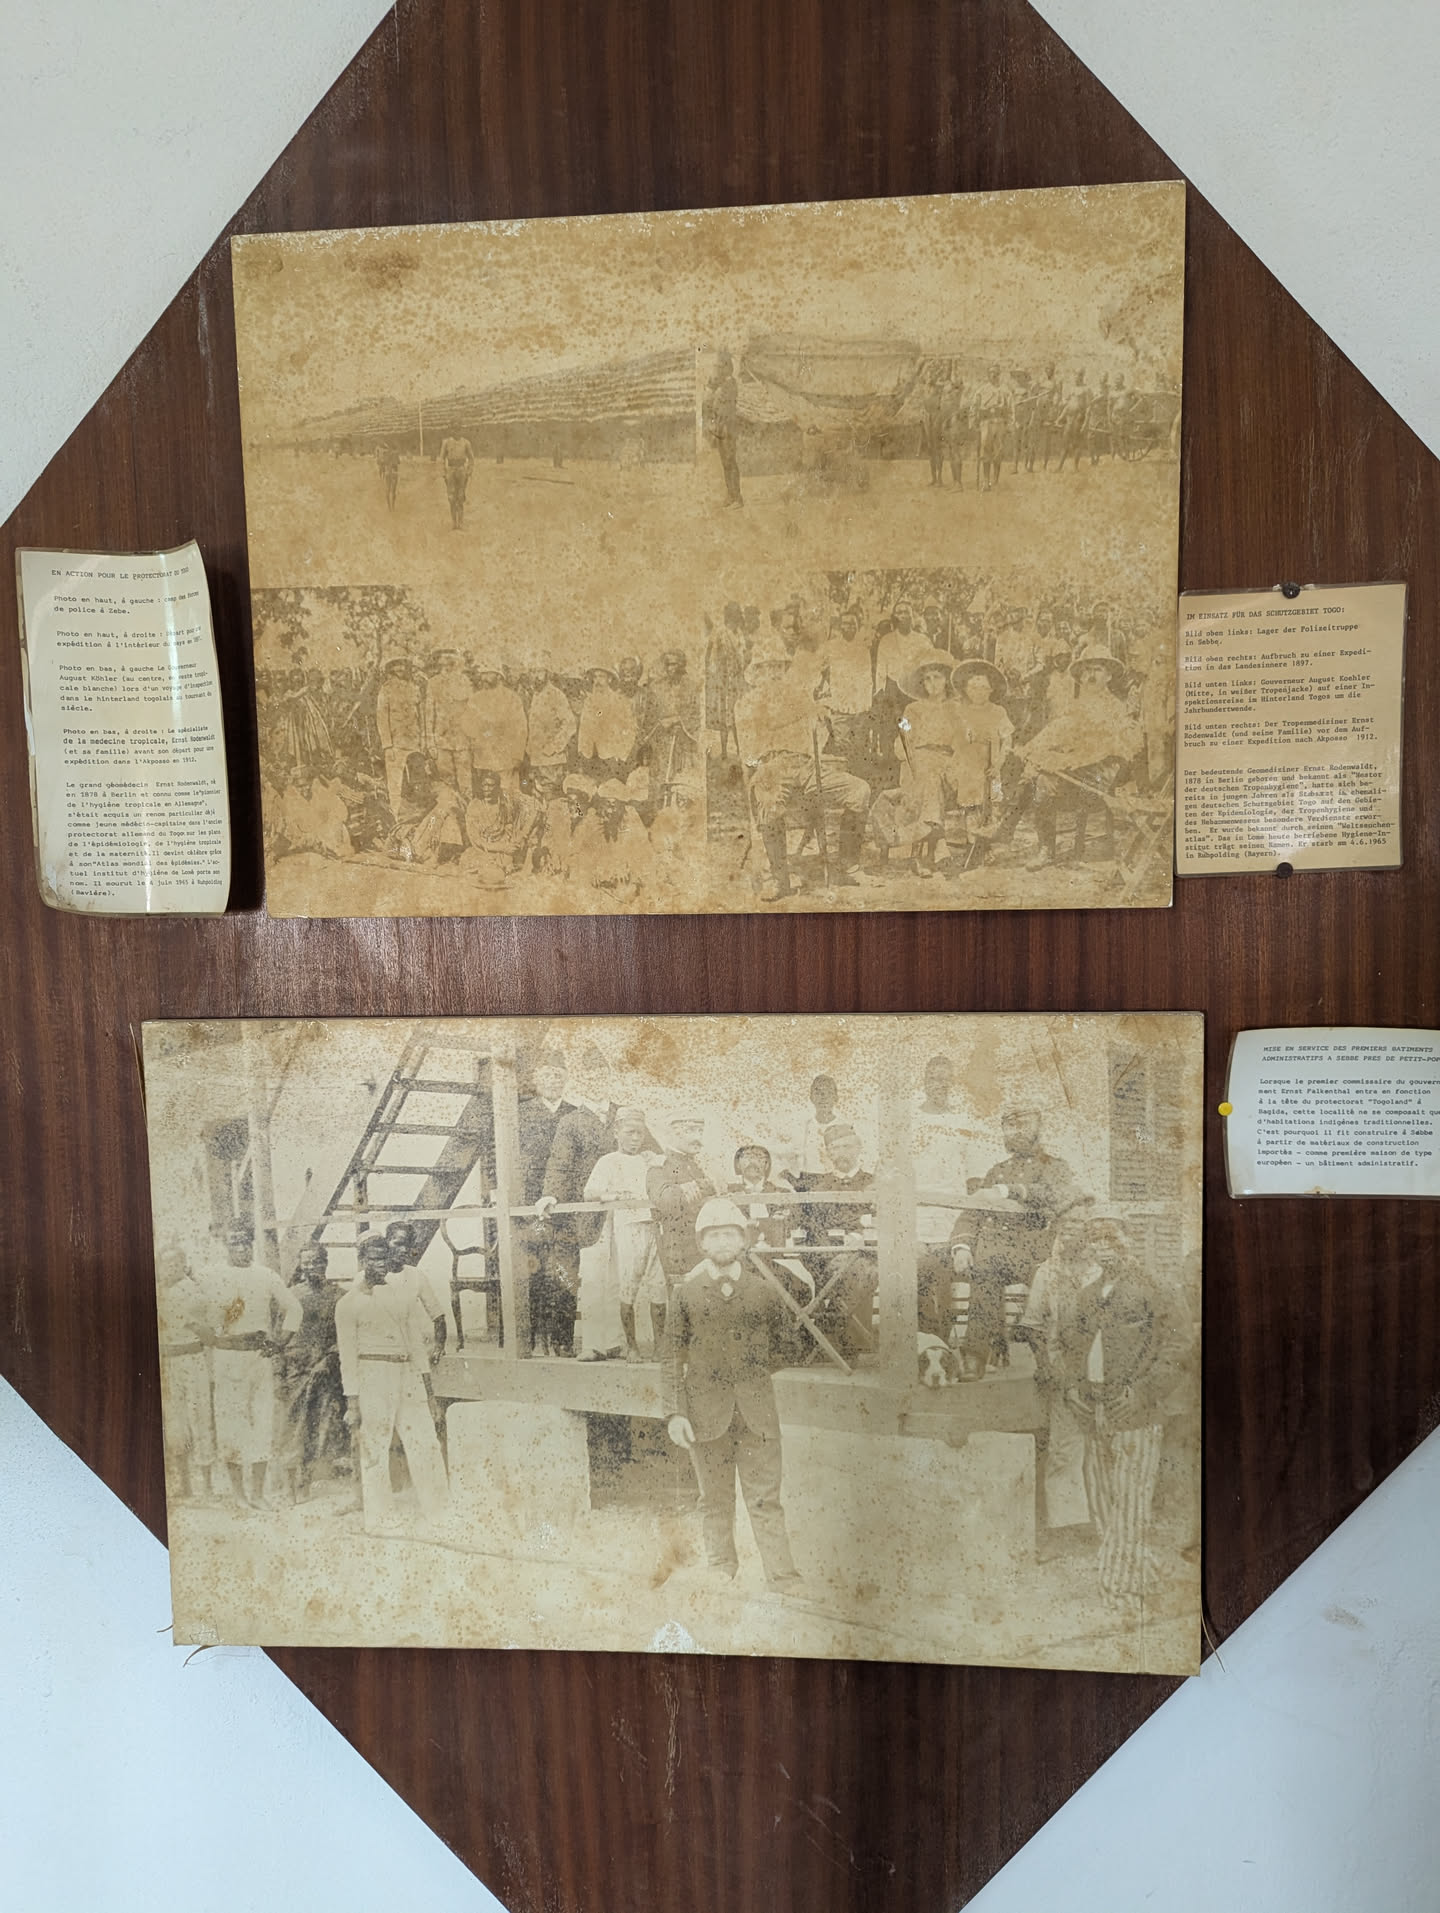 EN ACTION POUR LE PROTECTORAT DU TOGO
Photo en haut, á gauche : camp des forces
de police á Zebe.
Photo en haut, á droite : Départ pour une
expédition á l'intérieur du pays en 1897.
Photo en bas, á gauche Le Gouverneur
August Köhler (au centre, en veste tropi-
cale blanche) lors d'un voyage d'inspection
dans le hinterland togolais au tournant du
siécle.
Photo en bas, á droite : Le spécialiste
de la medecine tropicale, Ernst Rodenwaldt
(et sa famille) avant son départ pour une
expédition dans l'Akposso en 1912.
Le grand géomédecin Ernst Rodenwaldt, né
en 1878 á Berlin et connu comme le "pionier
de l'hygiéne tropicale en Allemagne",
s'était acquis un renom particulier déjá
comme jeune médécin-capitaine dans l'ancien
protectorat allemand du Togo sur les plans
de l'épidémiologie, de l'hygiéne tropicale
et de la maternité. Il devint célébre grâce
á son "Atlas mondial des épidémies." L'ac-
tuel institut d'hygiéne de Lomé porte son
nom. Il mourut le 4 juin 1965 á Ruhpolding
(Baviére).
IM EINSATZ FÜR DAS SCHUTZGEBIET TOGO:
Bild oben links: Lager der Polizeitruppe
in Sebbe.
Bild oben rechts: Aufbruch zu einer Expedi-
tion in das Landesinnere 1897.
Bild unten links: Gouverneur August Koehler
(Mitte, in weißer Tropenjacke) auf einer In-
spektionsreise im Hinterland Togos um die
Jahrhundertwende.
Bild unten rechts: Der Tropenmediziner Ernst
Rodenwaldt (und seine Familie) vor dem Auf-
bruch zu einer Expedition nach Akposso 1912.
Der bedeutende Geomediziner Ernst Rodenwaldt,
1878 in Berlin geboren und bekannt als "Nestor
der deutschen Tropenhygiene", hatte sich be-
reits in jungen Jahren als Stabsarzt im ehemali-
gen deutschen Schutzgebiet Togo auf den Gebie-
ten der Epidemiologie, der Tropenhygiene und
des Hebammenwesens besondere Verdienste erwor-
ben. Er wurde bekannt durch seinen "Weltseuchen-
atlas". Das in Lome heute betriebene Hygiene-In-
stitut trägt seinen Namen. Er starb am 4.6.1965
in Ruhpolding (Bayern).
MISE EN SERVICE DES PREMIERS BATIMENTS
ADMINISTRATIFS A SEBBE PRES DE PETIT-POP
Lorsque le premier commissaire du gouvern
ment Ernst Falkenthal entra en fonction
á la tête du protectorat "Togoland" á
Bagida, cette localité ne se composait que
d'habitations indigènes traditionnelles.
C'est pourquoi il fit construire á Sebbe
á partir de matériaux de construction
importés - comme première maison de type
européen - un bâtiment administratif.